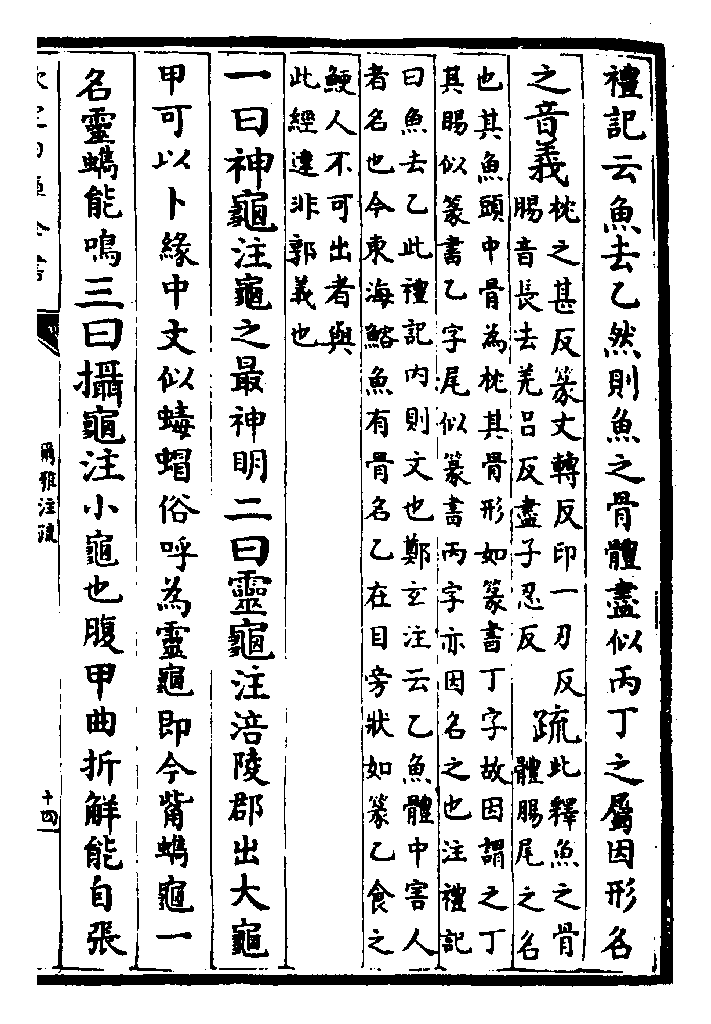 禮記云魚去乙然則魚之骨體盡似丙丁之屬因形名
之音義枕之甚反篆丈轉反印一刃反
腸音長去羌呂反盡子忍反
疏此釋魚之骨
體腸尾之名
也其魚頭中骨為枕其骨形如篆書丁字故因謂之丁
其腸似篆書乙字尾似篆書丙字亦因名之也注禮記
曰魚去乙此禮記內則文也鄭玄注云乙魚體中害人
者名也今東海鰫魚有骨名乙在目旁狀如篆乙食之
鯁人不可出者與
此經違非郭義也
一曰神龜注龜之最神明二曰靈龜注涪陵郡出大龜
甲可以卜緣中文似蝳蝐俗呼為靈龜即今觜蠵龜一
名靈蠵能鳴三曰攝龜注小龜也腹甲曲折解能自張
爾雅注疏
十四